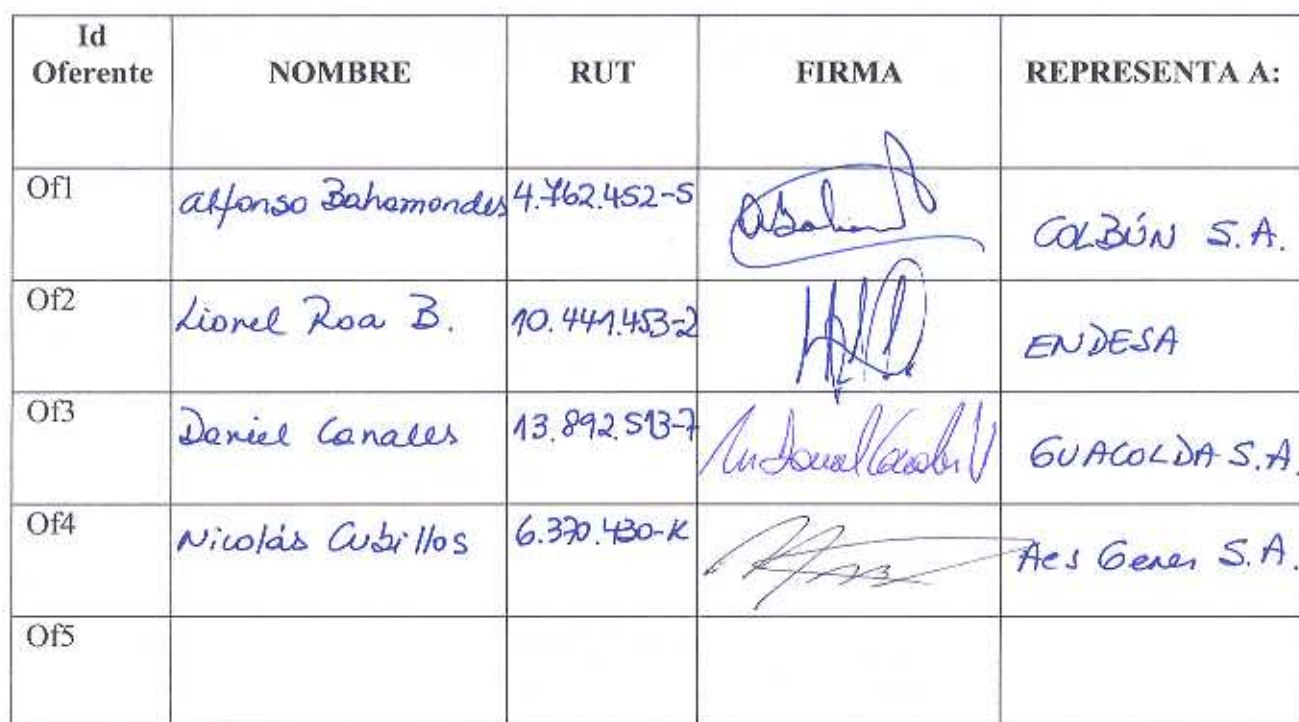 Id Oferente NOMBRE RUT FIRMA REPRESENTA A:
Of1 Alfonso Bahamondes 4.762.452-5 COLBÚN S.A.
Of2 Lionel Roa B. 10.441.453-2 ENDESA
Of3 Daniel Canales 13.892.513-7 GUACOLDA S.A.
Of4 Nicolás Cubillos 6.370.430-K Aes Gener S.A.
Of5